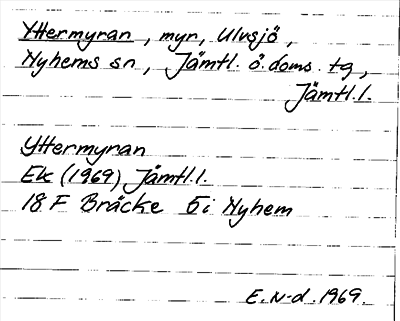 Yttermyran, myr, Ulvsjö,
Nyhems sn, Jämtl. ö. doms. tg,
Jämtl.l.
Yttermyran
Ek (1969) Jämtl.l.
18 F Bräcke 5i Nyhem
E.N-d. 1969.